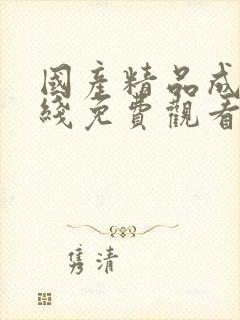 國産精品成
綫免費觀看
隽清